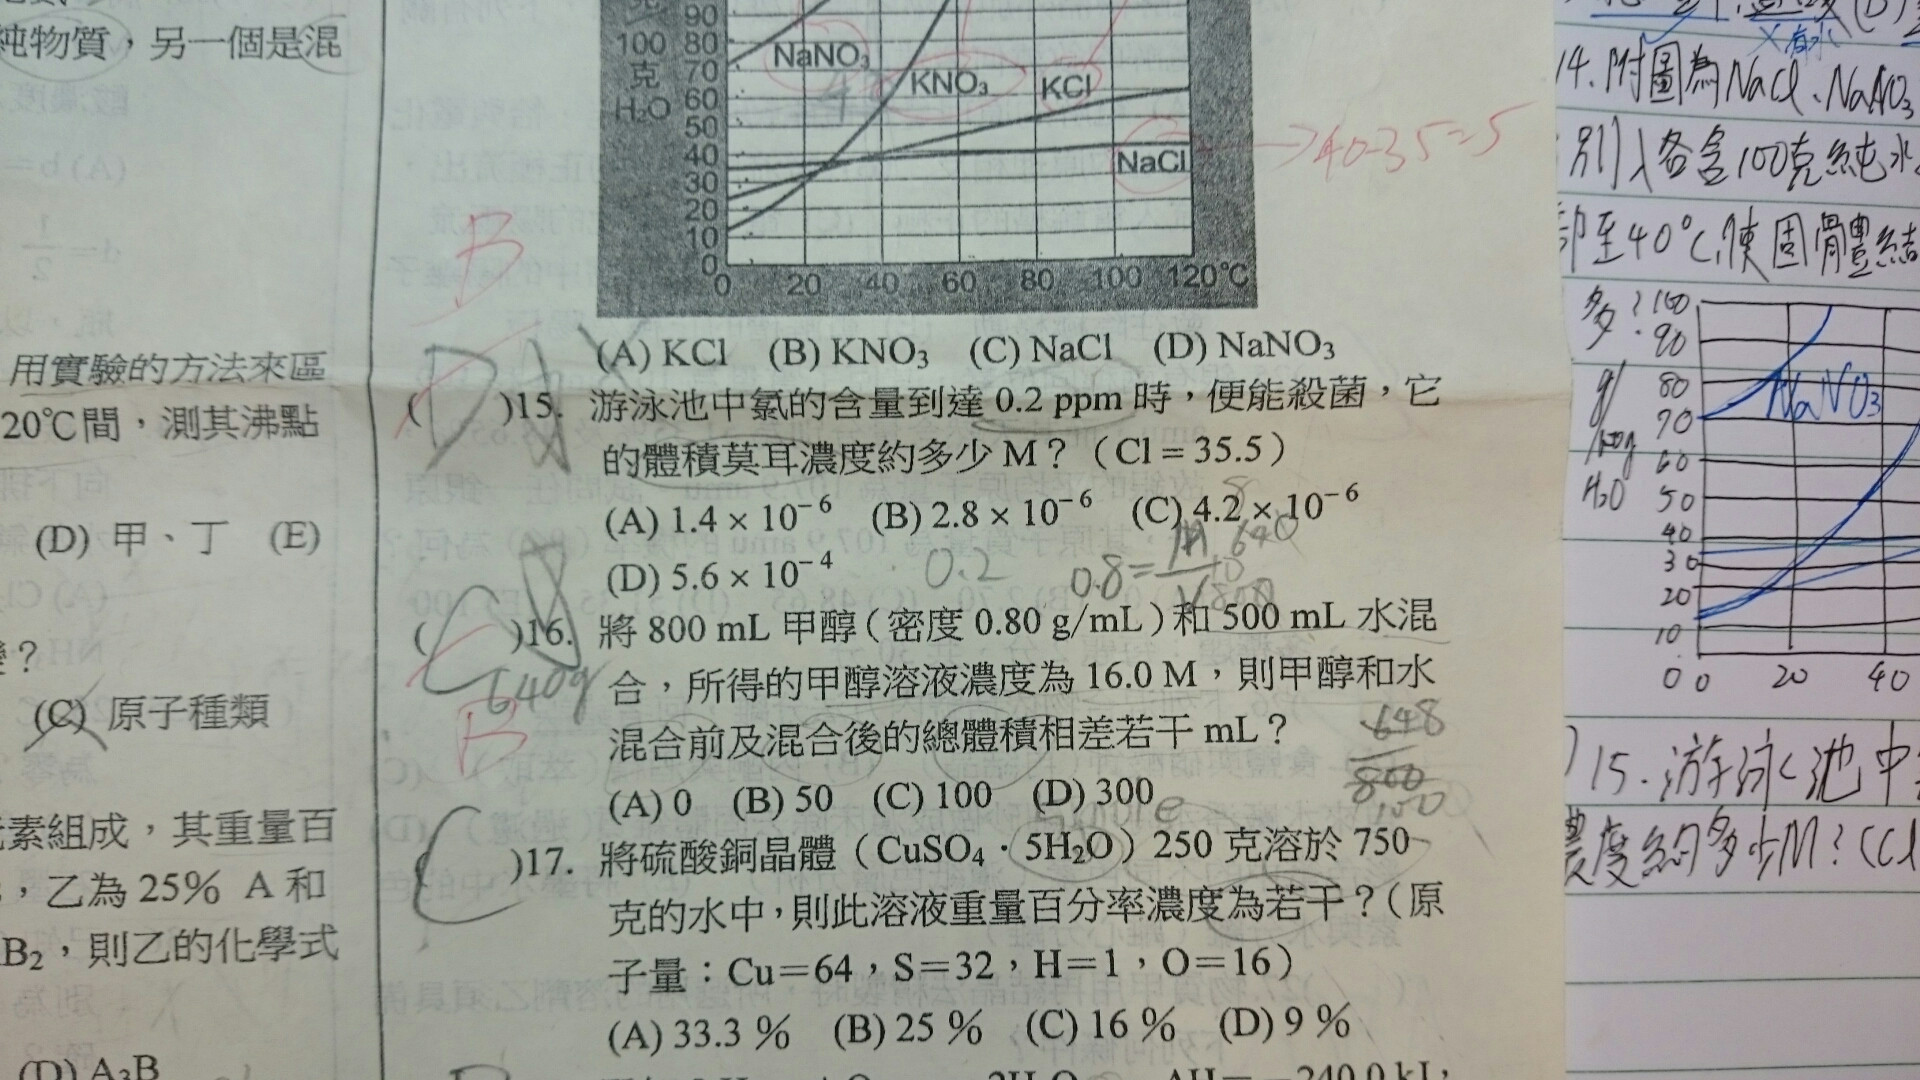 純物質，另一個是混
用實驗的方法來區
20℃間，測其沸點
(D) 甲、丁 (E)
?
(C) 原子種類
素組成，其重量百
，乙為 25% A 和
B₂，則乙的化學式
(D) A₃B
90
100 80
克 70
H₂O 60
50
40
30
20
10
0
0 20 40 60 80 100 120℃
NaNO₃
KNO₃
KCl
NaCl
40-35=5
B
(A) KCl (B) KNO₃ (C) NaCl (D) NaNO₃
D
( )15. 游泳池中氯的含量到達 0.2 ppm 時，便能殺菌，它
的體積莫耳濃度約多少 M？（Cl = 35.5）
(A) 1.4 × 10⁻⁶ (B) 2.8 × 10⁻⁶ (C) 4.2 × 10⁻⁶
(D) 5.6 × 10⁻⁴
0.2
0.8=
640
C
( )16. 將 800 mL 甲醇（密度 0.80 g/mL）和 500 mL 水混
合，所得的甲醇溶液濃度為 16.0 M，則甲醇和水
混合前及混合後的總體積相差若干 mL？
(A) 0 (B) 50 (C) 100 (D) 300
640g
B
648
800
C
( )17. 將硫酸銅晶體（CuSO₄．5H₂O）250 克溶於 750
克的水中，則此溶液重量百分率濃度為若干？（原
子量：Cu＝64，S＝32，H＝1，O＝16）
(A) 33.3 % (B) 25 % (C) 16 % (D) 9 %
14.附圖為NaCl、NaNO₃
別入各含100克純水
至40℃,使固體結
多?
100
90
80
70
60
50
40
30
20
10
0
0 20 40
g/100g
H₂O
NaNO₃
)15.游泳池中
濃度約多少M?(Cl